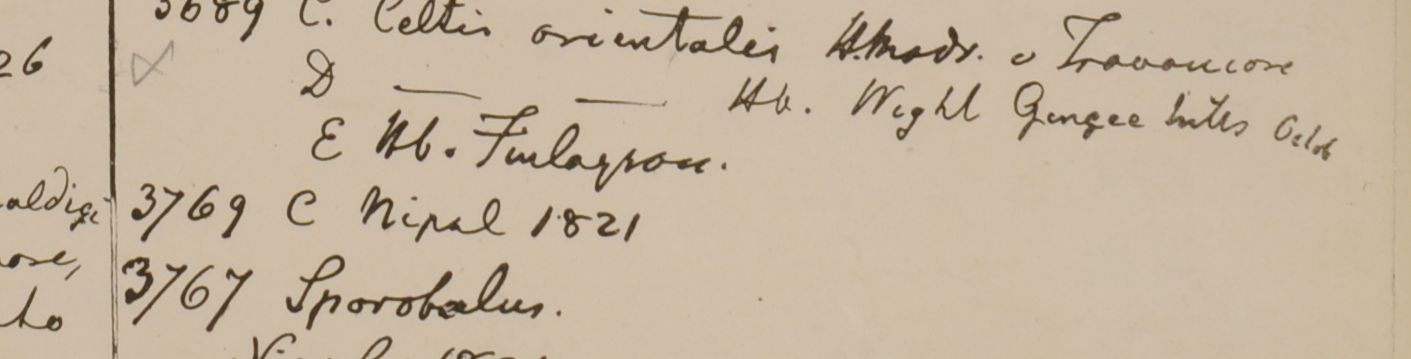 3689 C. Celtis orientalis H. Madr. v Travancore
26
D — — Hb. Wight Gingee hills Octob
E Hb. Finlayson.
3769 C Nipal 1821
3767 Sporobolus.
ho